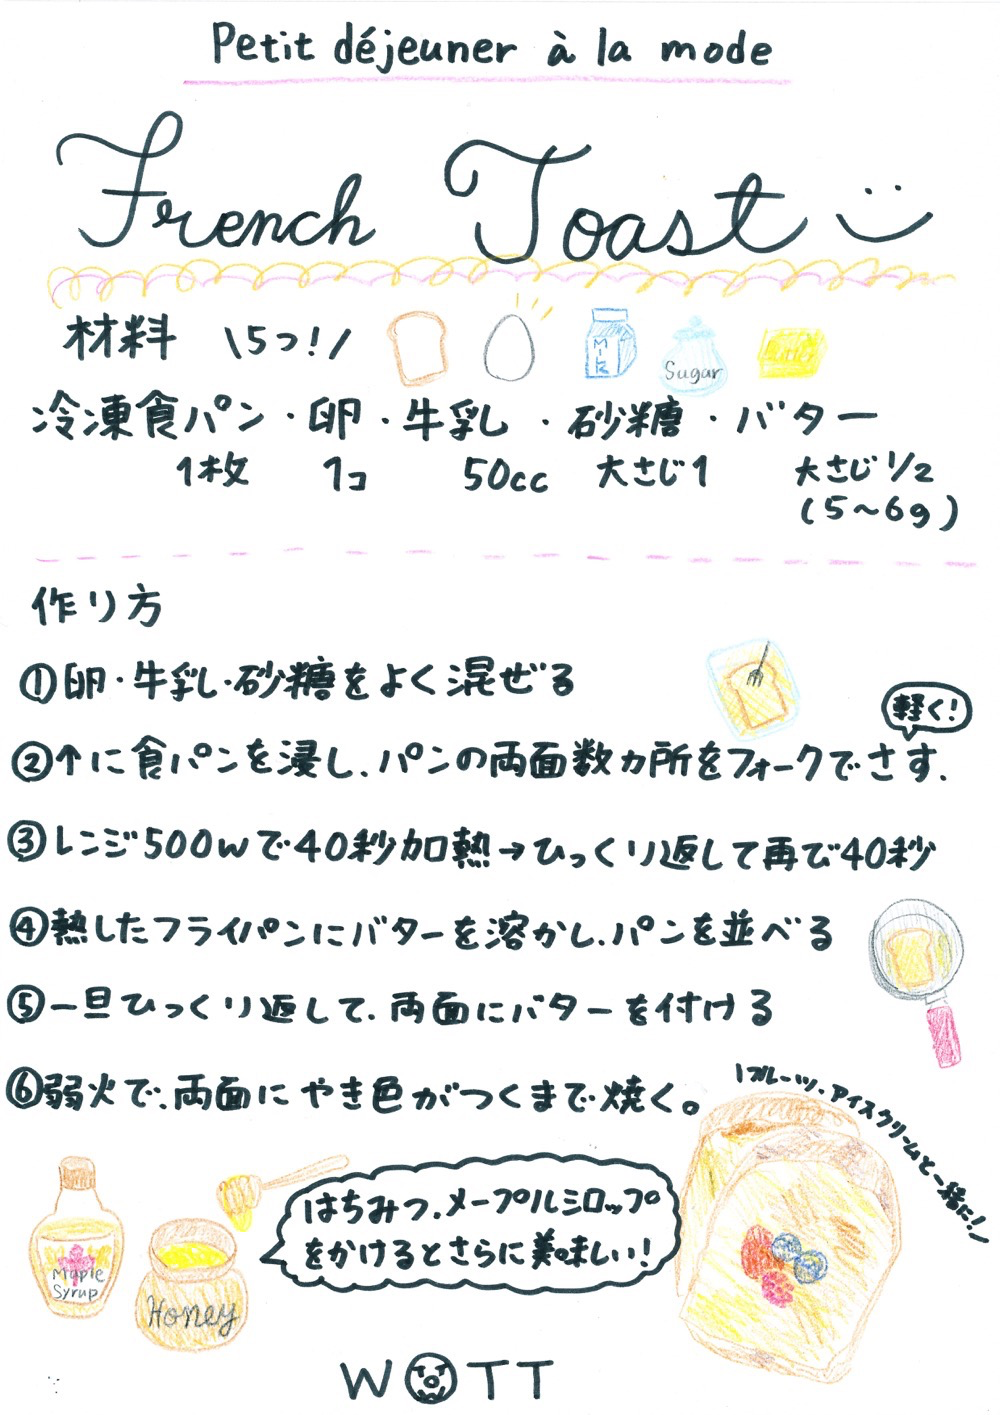 Petit déjeuner à la mode
French Toast
材料 \5つ!/
MILK
Sugar
冷凍食パン・卵・牛乳・砂糖・バター
1枚 1コ 50cc 大さじ1 大さじ1/2
(5〜6g)
作り方
①卵・牛乳・砂糖をよく混ぜる
軽く!
②↑に食パンを浸し、パンの両面数ヵ所をフォークでさす。
③レンジ500wで40秒加熱→ひっくり返して再び40秒
④熱したフライパンにバターを溶かし、パンを並べる
⑤一旦ひっくり返して、両面にバターを付ける
⑥弱火で、両面にやき色がつくまで焼く。
\フルーツ、アイスクリームと一緒に!/
はちみつ、メープルシロップ
をかけるとさらに美味しい!
Maple
Syrup
Honey
WOTT